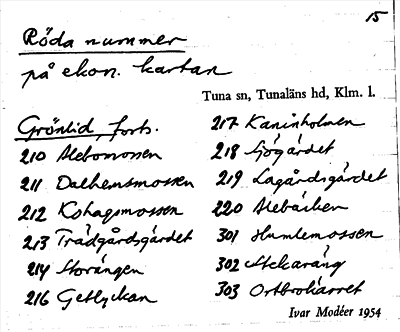 15
Röda nummer
på ekon. kartan
Tuna sn, Tunaläns hd, Klm. l.
Grönlid, forts.
210 Alebomossen
211 Dalhemsmossen
212 Kohagsmossen
213 Trädgårdsgärdet
214 Storängen
216 Getlyckan
217 Kaninholmen
218 Sjögärdet
219 Lagårdsgärdet
220 Alebäcken
301 Humlemossen
302 Stekaräng
303 Ortbrokärret
Ivar Modéer 1954